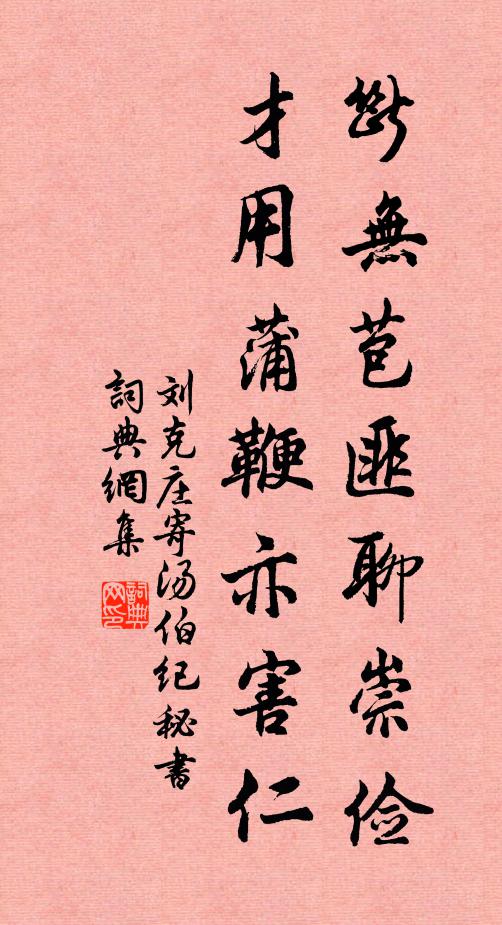 断無苞匪聊崇俭
才用蒲鞭亦害仁
刘克庄寄汤伯纪秘書
詞典網集
詞典网印